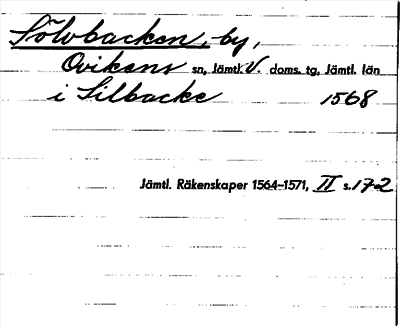 Sölvbacken, by,
Ovikens sn, Jämtl. V. doms. tg, Jämtl. län
i Silbacke 1568
Jämtl. Räkenskaper 1564-1571, II s. 172